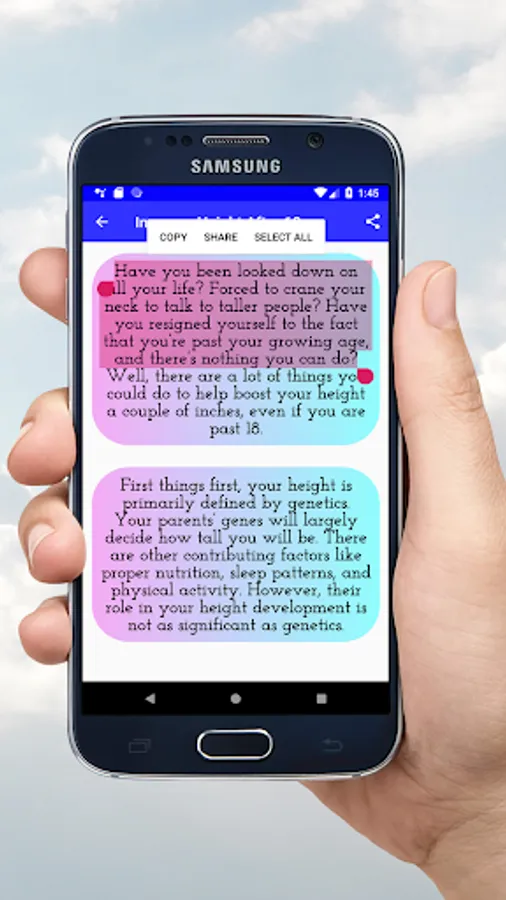 SAMSUNG
1:45
COPY SHARE SELECT ALL
Have you been looked down on
all your life? Forced to crane your
neck to talk to taller people? Have
you resigned yourself to the fact
that you're past your growing age,
and there's nothing you can do?
Well, there are a lot of things you
could do to help boost your height
a couple of inches, even if you are
past 18.
First things first, your height is
primarily defined by genetics.
Your parents' genes will largely
decide how tall you will be. There
are other contributing factors like
proper nutrition, sleep patterns, and
physical activity. However, their
role in your height development is
not as significant as genetics.